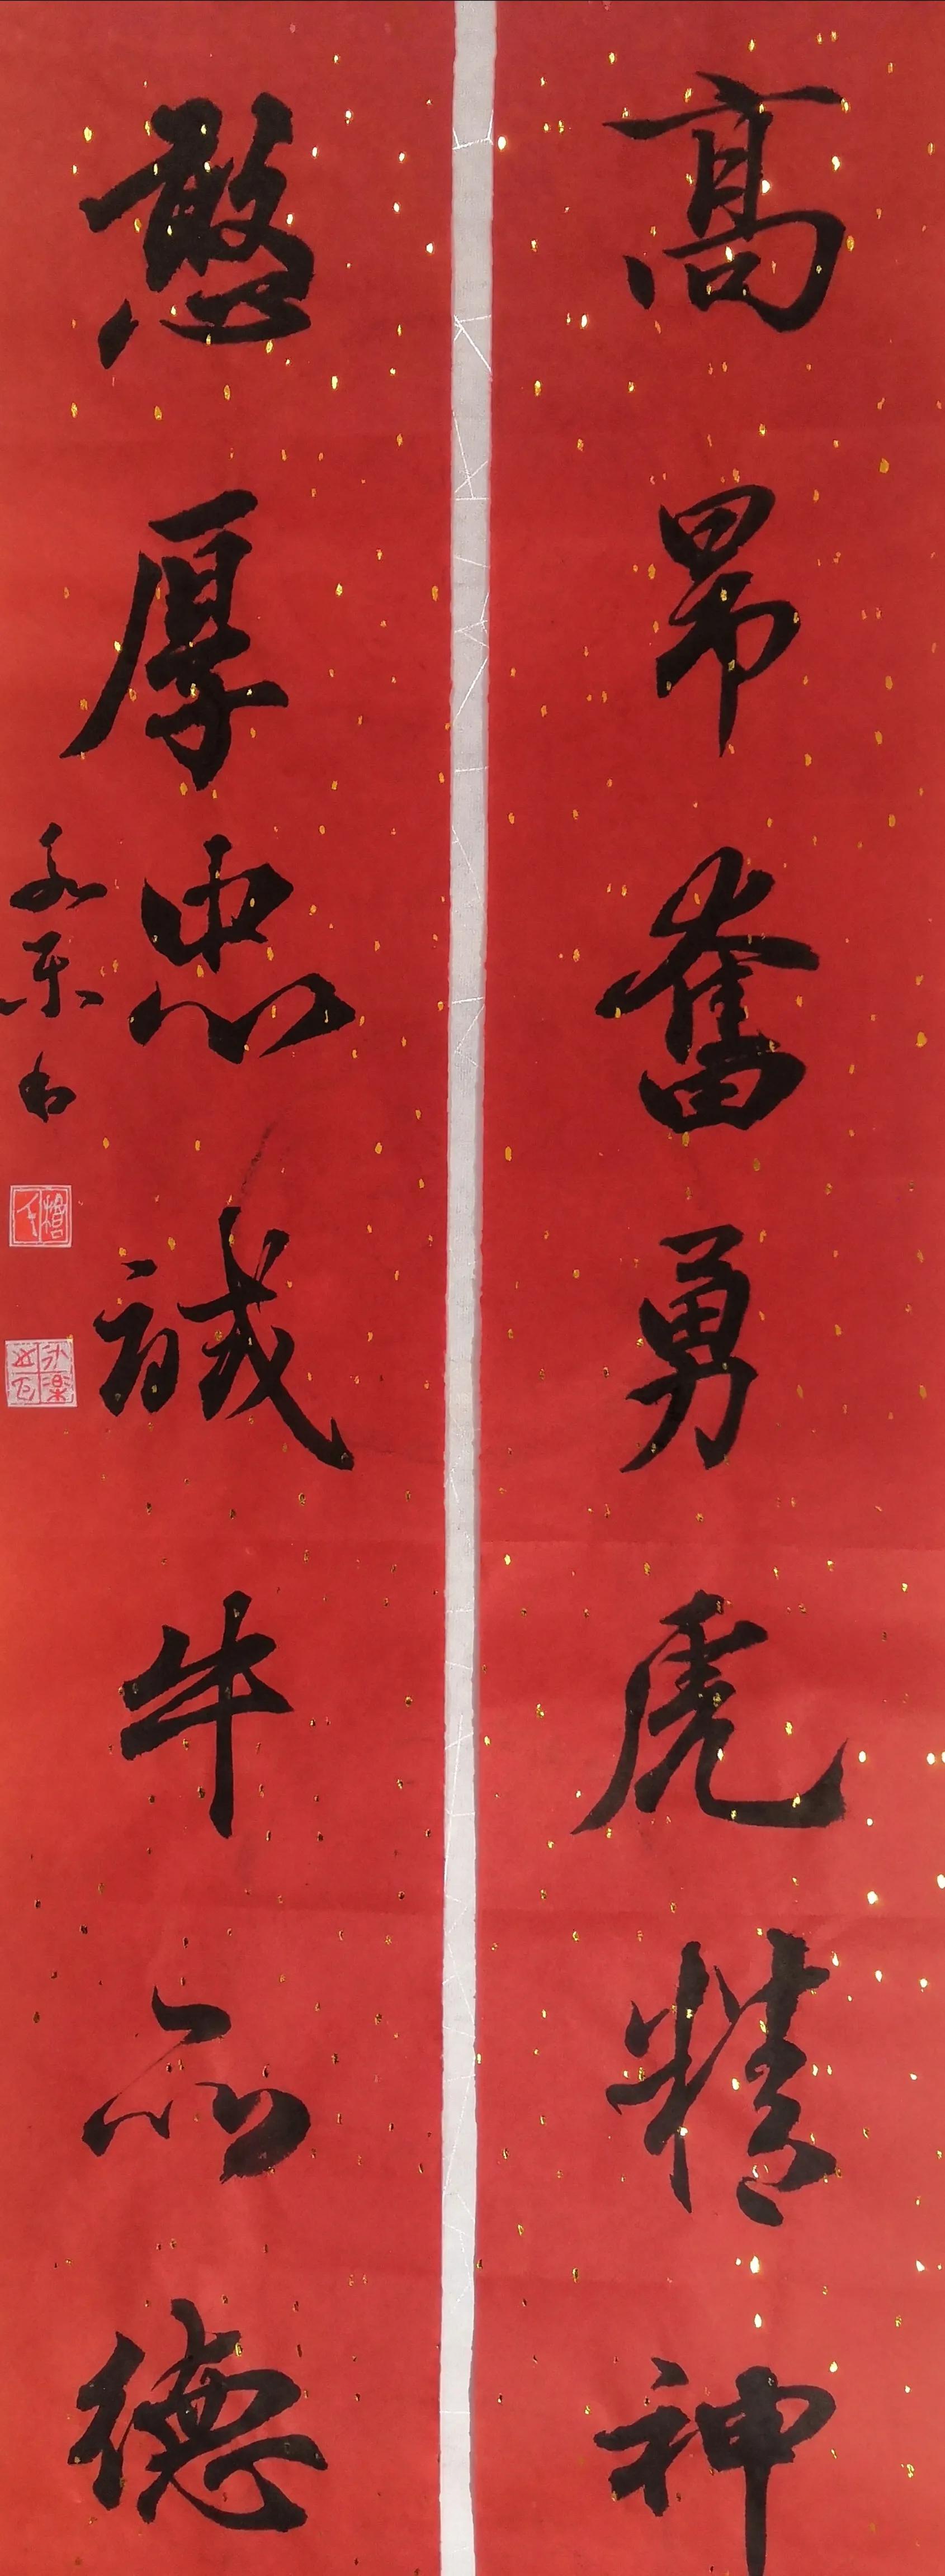 高昂奮勇虎精神
憨厚忠誠牛品德
永樂书